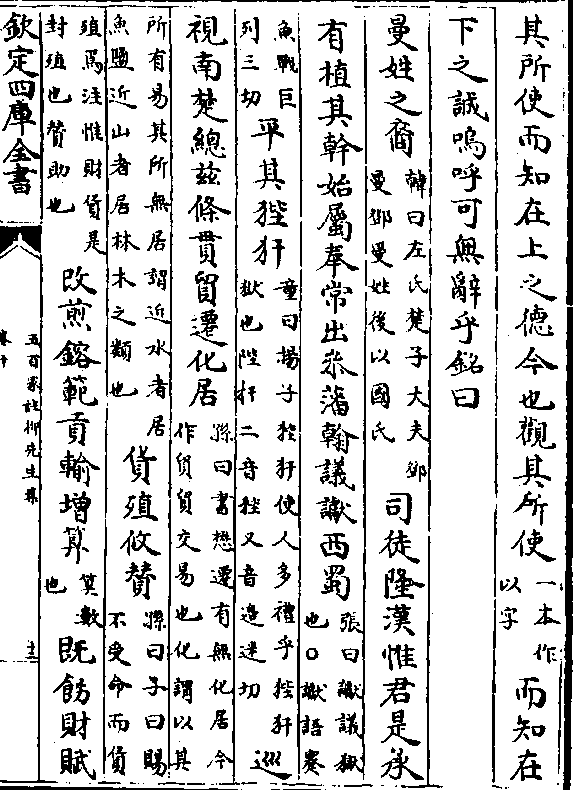 其所使而知在上之德今也觀其所使一本作以字而知在
下之誠嗚呼可無辭乎銘曰
曼姓之裔韓曰左氏楚子大夫鄧曼鄧曼姓後以國氏司徒隆漢惟君是承
有植其幹始屬奉常出叅藩翰議讞西蜀張曰讞議獄也○讞語蹇
魚戰巨列三切平其狴犴童曰揚子狴犴使人多禮乎狴犴獄也陛犴二音狴又音邊迷切巡
視南楚總茲條貫貿遷化居孫曰書懋遷有無化居今作貿貿交易也化謂以其
所有易其所無居謂近水者居魚鹽近山者居林木之類也貨殖攸贊孫曰子曰賜不受命而貨
殖焉注惟財貨是封殖也贊助也改煎鎔範貢輸增筭筭數也既飭財賦
欽定四庫全書
五百家註柳先生集
卷十
十三